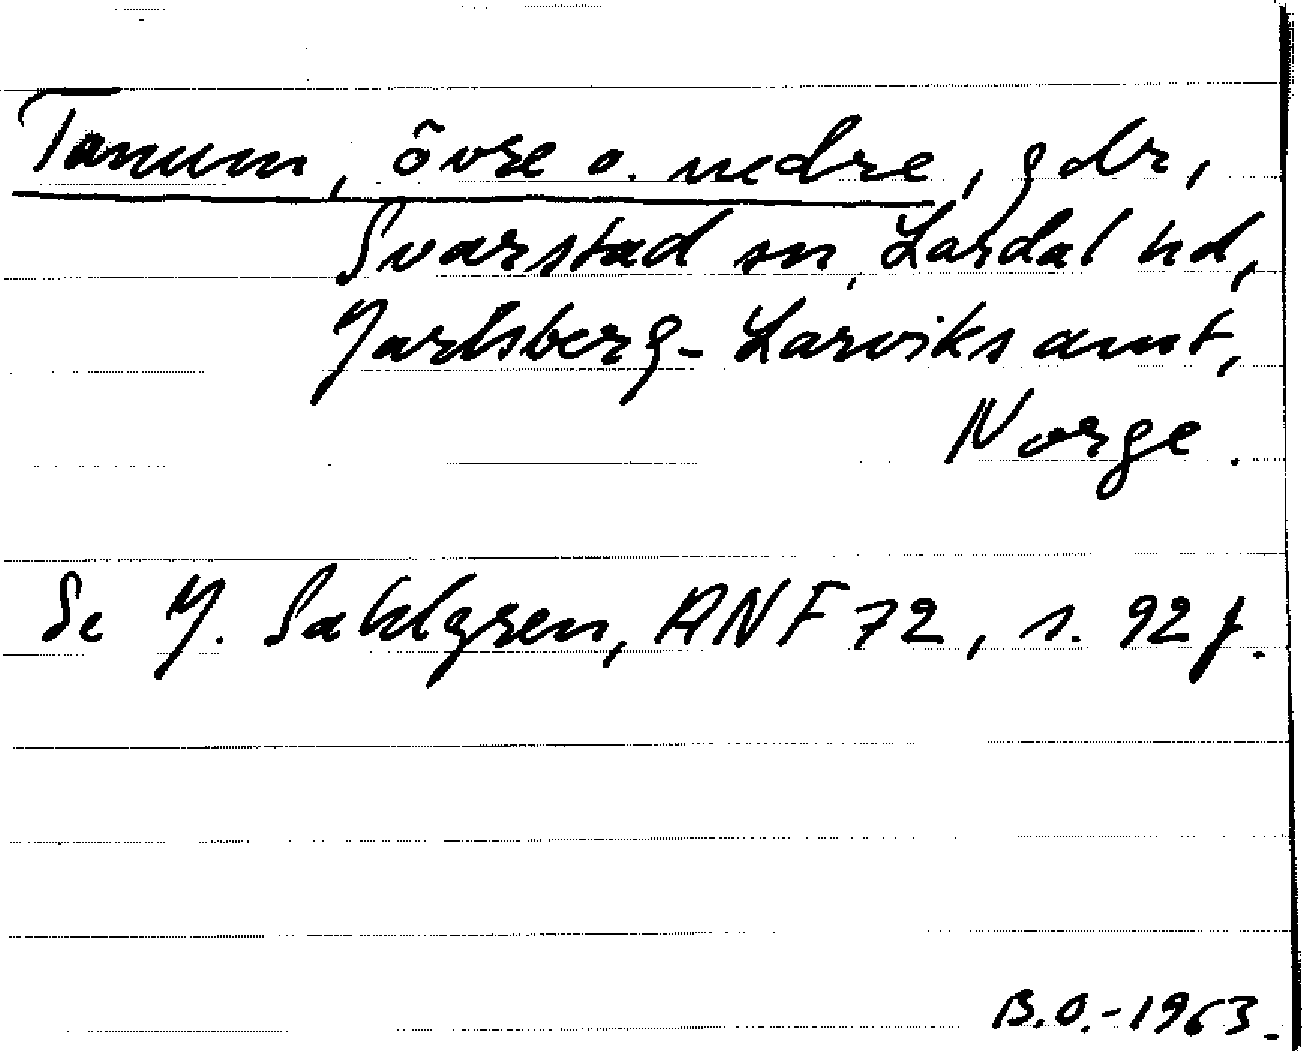 Tanum, övre o. nedre, gdr,
Svarstad sn, Lardal hd,
Jarlsberg-Larviks amt,
Norge.
Se J. Sahlgren, ANF 72, s. 92 f.
B.O.-1963.